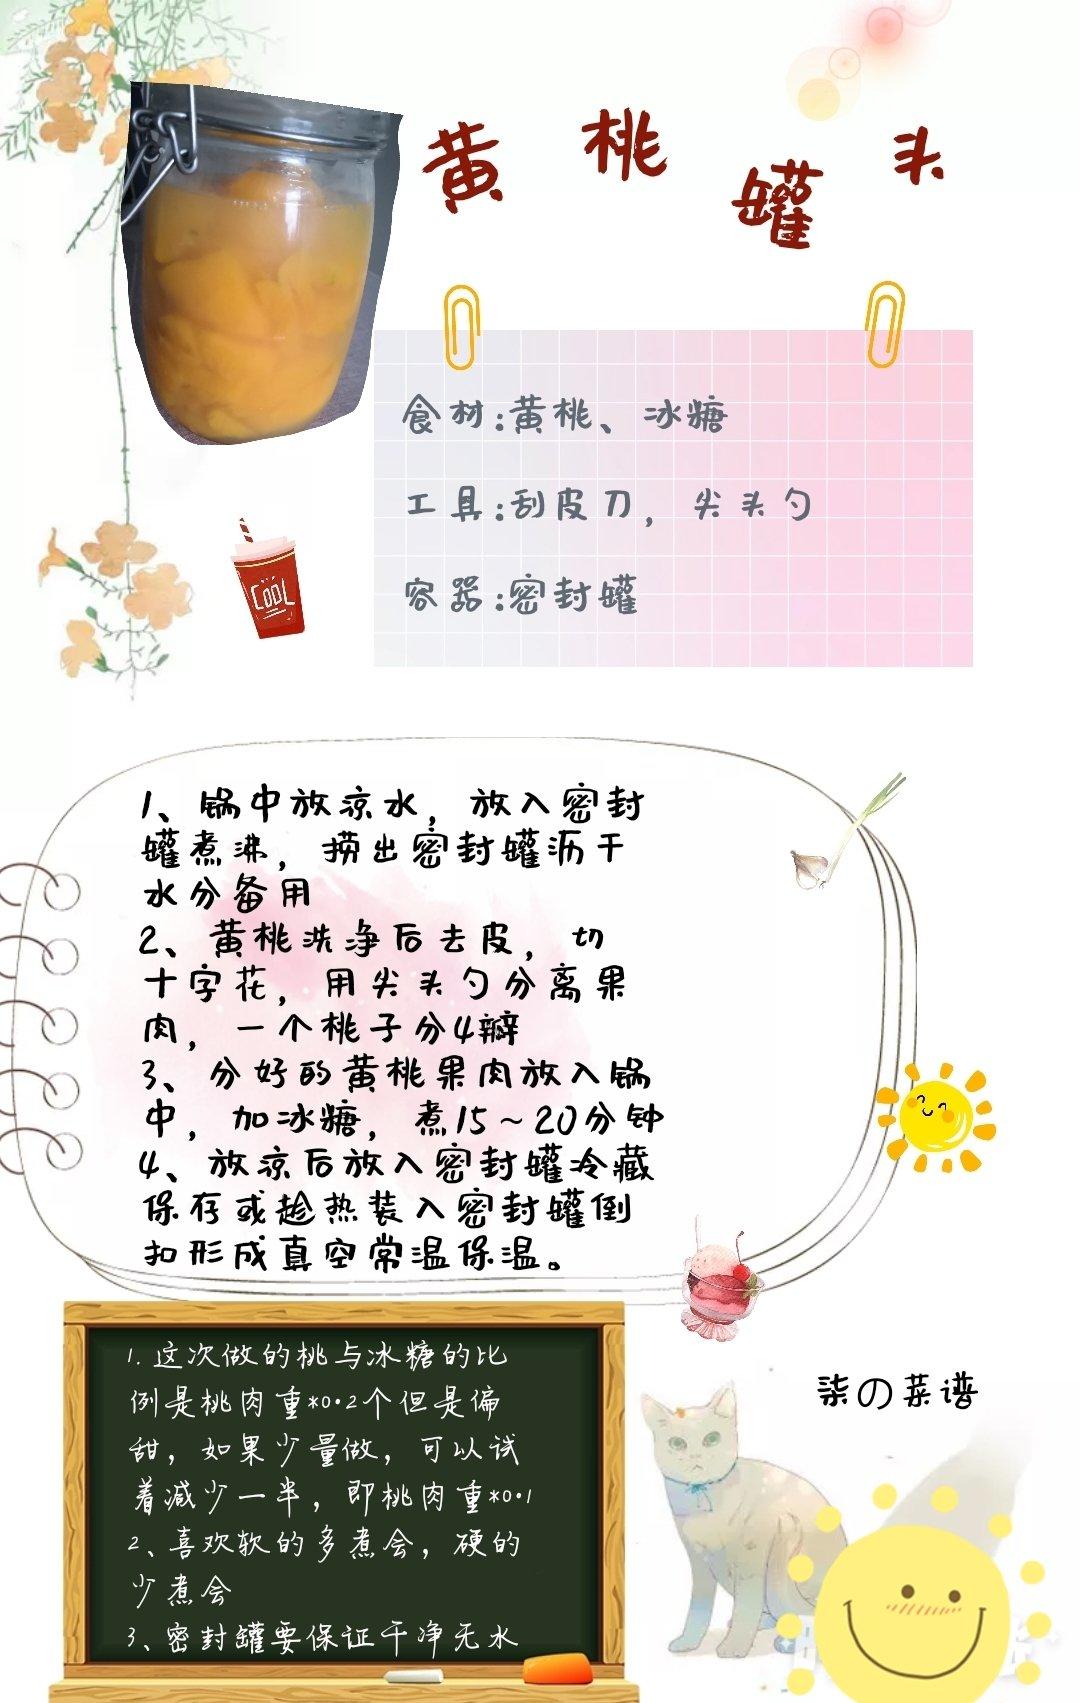 黄桃罐头
食材:黄桃、冰糖
工具:刮皮刀，尖头勺
容器:密封罐
COOL
1、锅中放凉水，放入密封
罐煮沸，捞出密封罐沥干
水分备用
2、黄桃洗净后去皮，切
十字花，用尖头勺分离果
肉，一个桃子分4瓣
3、分好的黄桃果肉放入锅
中，加冰糖，煮15~20分钟
4、放凉后放入密封罐冷藏
保存或趁热装入密封罐倒
扣形成真空常温保温。
1. 这次做的桃与冰糖的比
例是桃肉重*0.2个但是偏
甜，如果少量做，可以试
着减少一半，即桃肉重*0.1
2、喜欢软的多煮会，硬的
少煮会
3、密封罐要保证干净无水
柒の菜谱